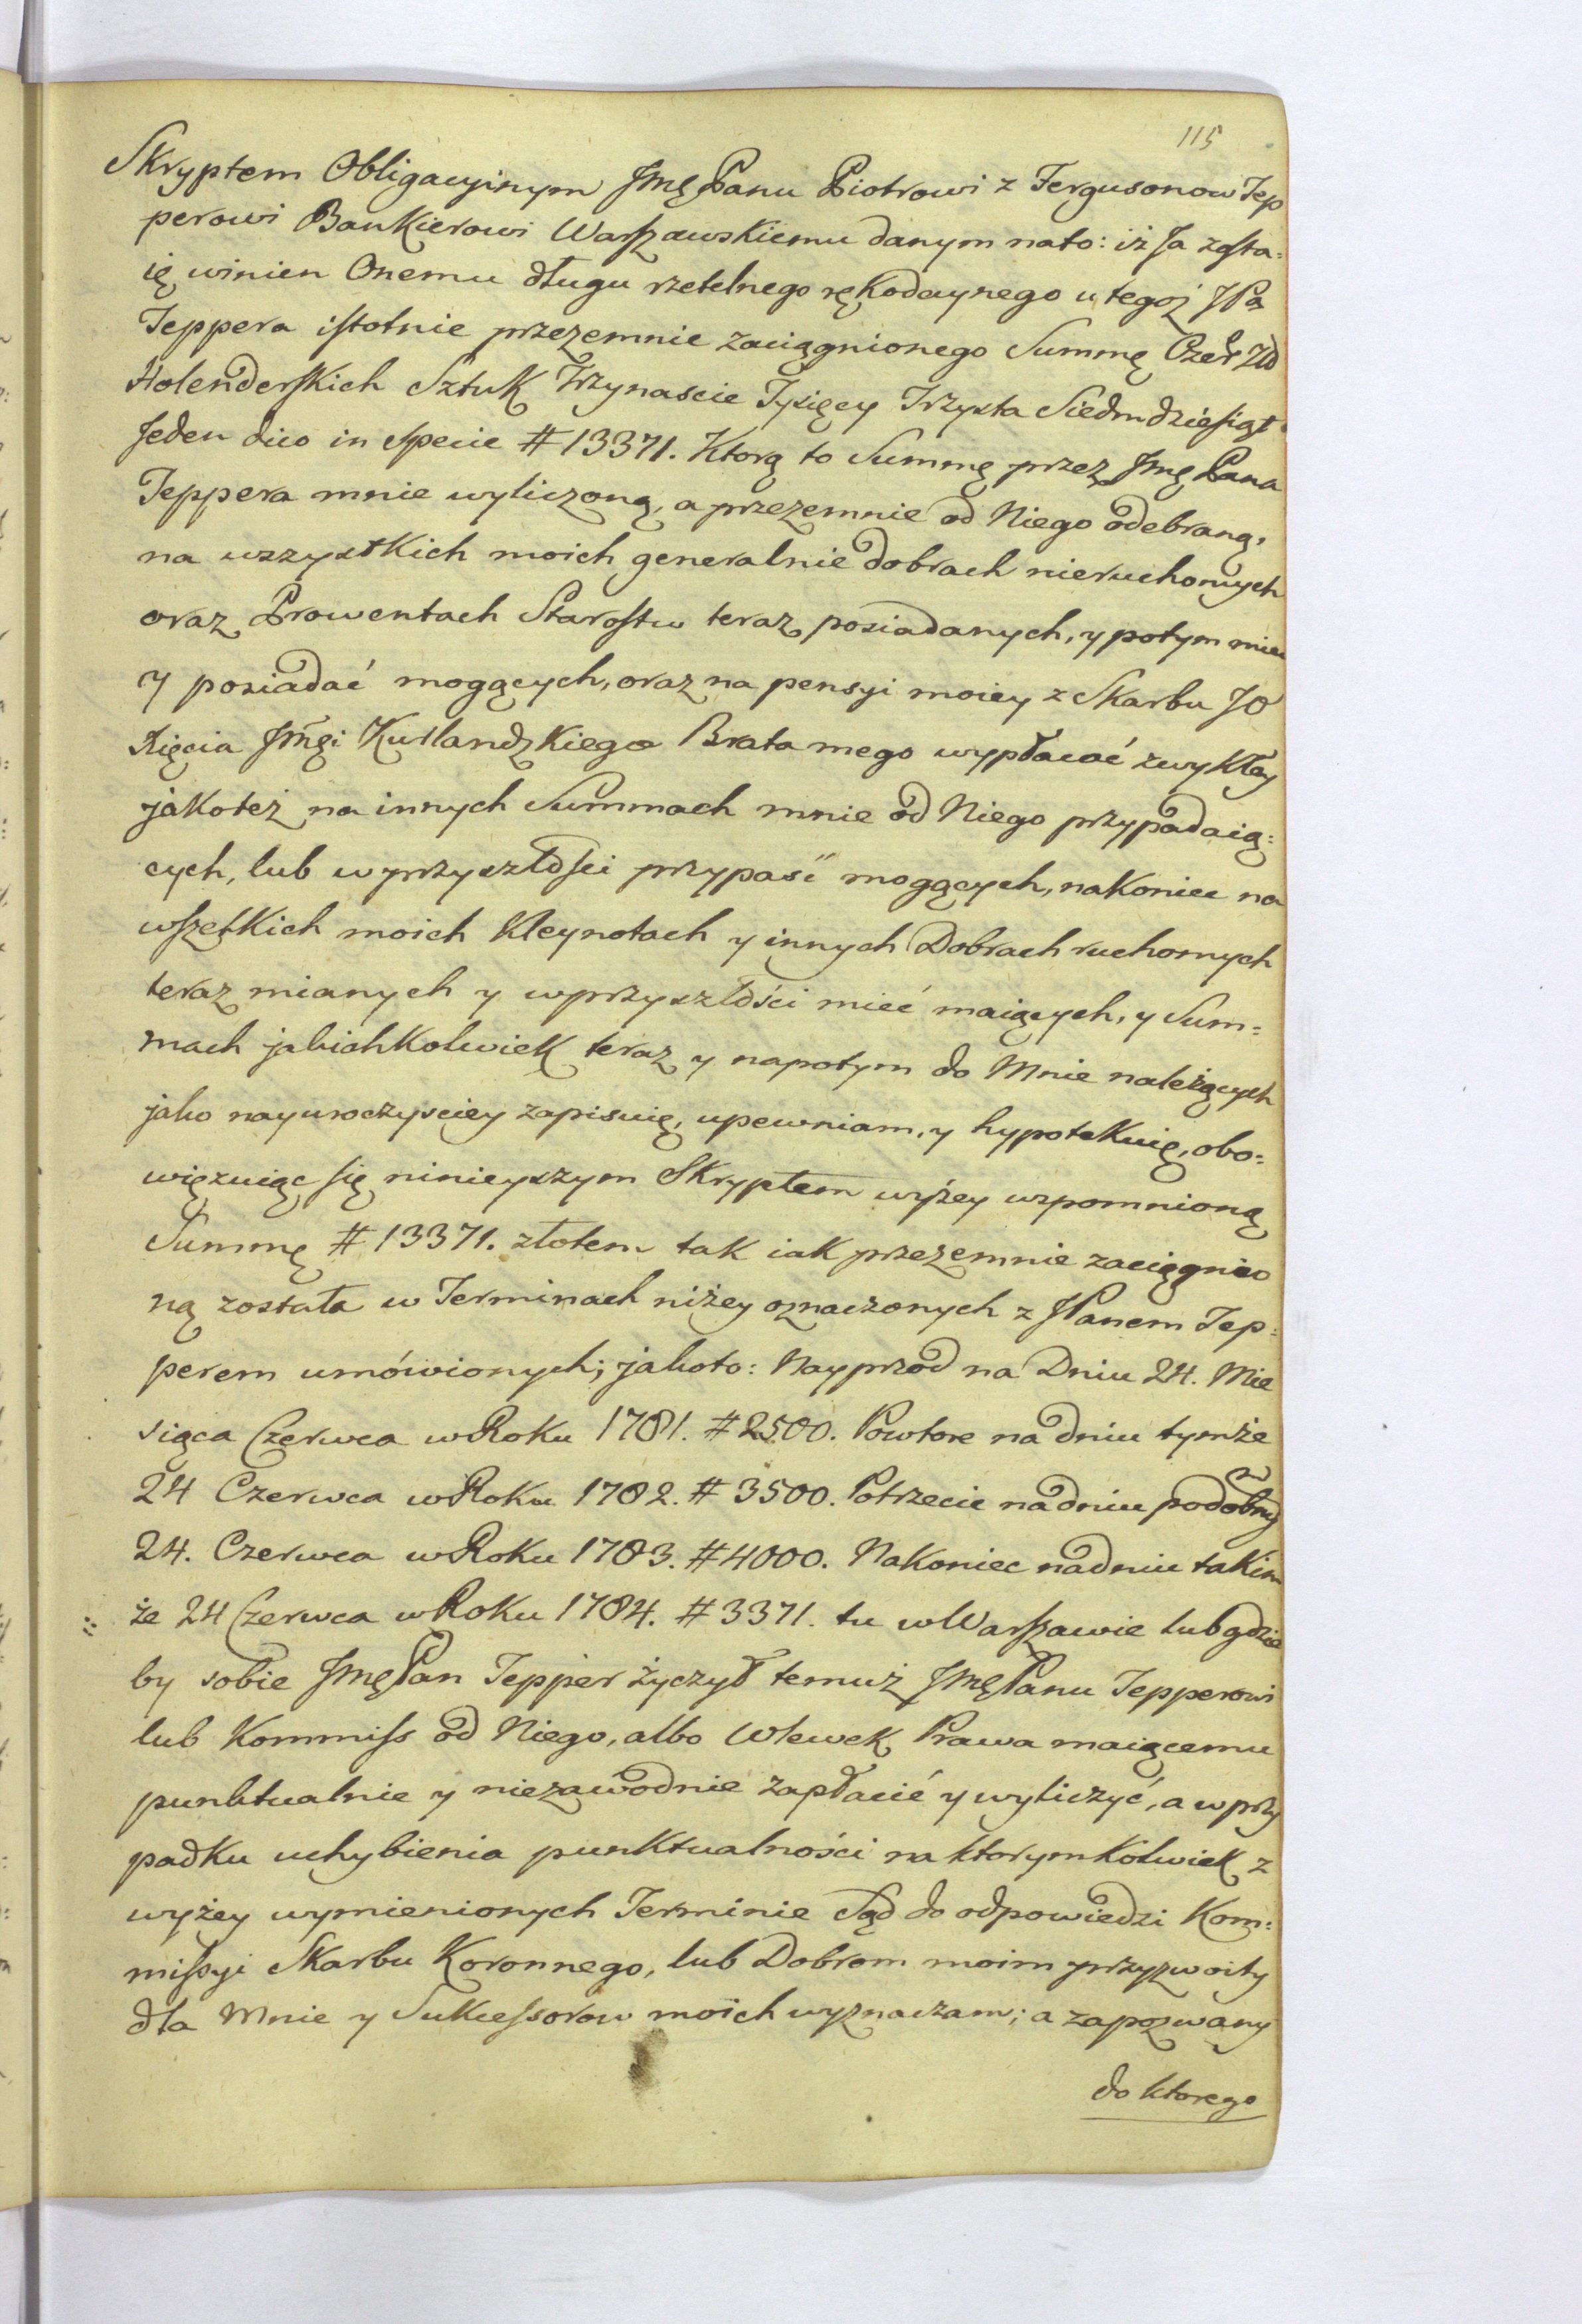 115
Skryptem Obligacyinym Jmę Panu Piotrowi z Fergusonow Tep
perowi Bankierowi Warszawskiemu danym nato: iż Ja zosta-
ię winien Onemu długu rzetelnego rękodaynego u tegoż JPa
Teppera istotnie przezemnie zaciągnionego Summę Czer Zło
Holenderskich Sztuk Trzynascie Tysięcy Trzysta Siedmdziesiąt
Jeden dico in specie # 13371. Ktorą to Summę przez Jmę Pana
Teppera mnie wyliczoną, a przezemnie od Niego odebraną,
na wszystkich moich generalnie dobrach nieruchomych
oraz Prowentach Starostw teraz posiadanych, y potym miec
y posiadać mogących, oraz na pensyi moiey z Skarbu JO
Xięcia Jmęi Kurlandzkiego Brata mego wypłacać zwykłey
jakoteż na innych Summach mnie od Niego przypadaią:
cych, lub w przyszłości przypaść mogących, nakoniec na
wszetkich moich Kleynotach y innych Dobrach ruchomych
teraz mianych y wprzyszłości mieć maiących, y Sum=
mach jakichkolwiek teraz y napotym do Mnie należących
jako nayuroczysciey zapisuię, upewniam, y hypotekuię, obo:
więzuiąc się ninieyszym Skryptem wyżey wspomnioną
Summę # 13371. złotem tak iak przezemnie zaciągnio
ną została w Terminach niżey oznaczonych z JPanem Tep:
perem umówionych; jakoto: Nayprzod na Dniu 24. Mie
siąca Czerwca w Roku 1781. # 2500. Powtore na dniu tymże
24 Czerwca w Roku 1782. # 3500. Potrzecie na dniu podobny
24. Czerwca w Roku 1783. # 4000. Nakoniec na dniu takim
że 24 Czerwca w Roku 1784. # 3371. tu w Warszawie lub gdzie
by sobie Jmę Pan Tepper życzył temuż Jmę Panu Tepperowi
lub Kommiss od Niego, albo Wlewek Prawa maiącemu
punktualnie y niezawodnie zapłacić y wyliczyć, a w przy
padku uchybienia punktualności na ktorymkolwiek z
wyżey wymienionych Terminie Sąd do odpowiedzi Kom:
missyi Skarbu Koronnego, lub Dobrom moim przyzwoity
dla Mnie y Sukcessorow moich wyznaczam; a zapozwany
do ktorego